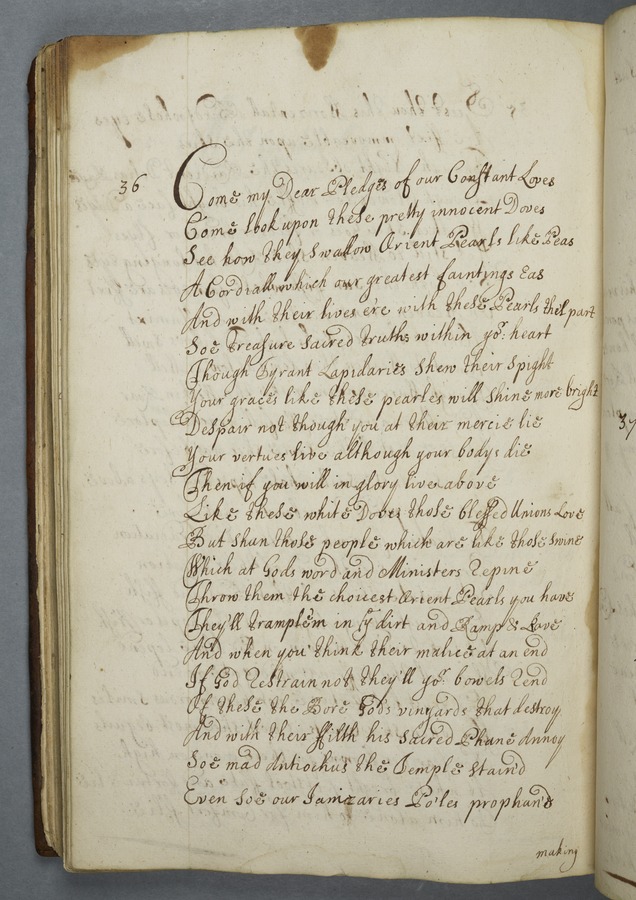 36
Come my Dear Pledges of our Constant Loves
Come look upon these pretty innocent Doves
See how they swallow Orient Pearls like Peas
A Cordiall which our greatest faintings Eas
And with their lives ere with these Pearls they'l part
Soe treasure sacred truths within yor: heart
Though Tyrant Lapidaries shew their spight
Your graces like these pearles will shine more bright
Despair not though you at their mercie lie
Your vertues live although your bodys die
Then if you will in glory live above
Like these white Doves those blessed Unions Love
But shun those people which are like those swine
Which at Gods word and Ministers repine
Throw them the choicest Orient Pearls you have
They'll trample'm in ye dirt and Ramp & Rave
And when you think their malice at an end
If God restrain not they'll yor: bowels rend
Of these the Bore Gods vinyards that destroy
And with their filth his sacred Phane Annoy
Soe mad Antiochus the Temple staind
Even soe our Janizaries Po'les prophan'd
making
37